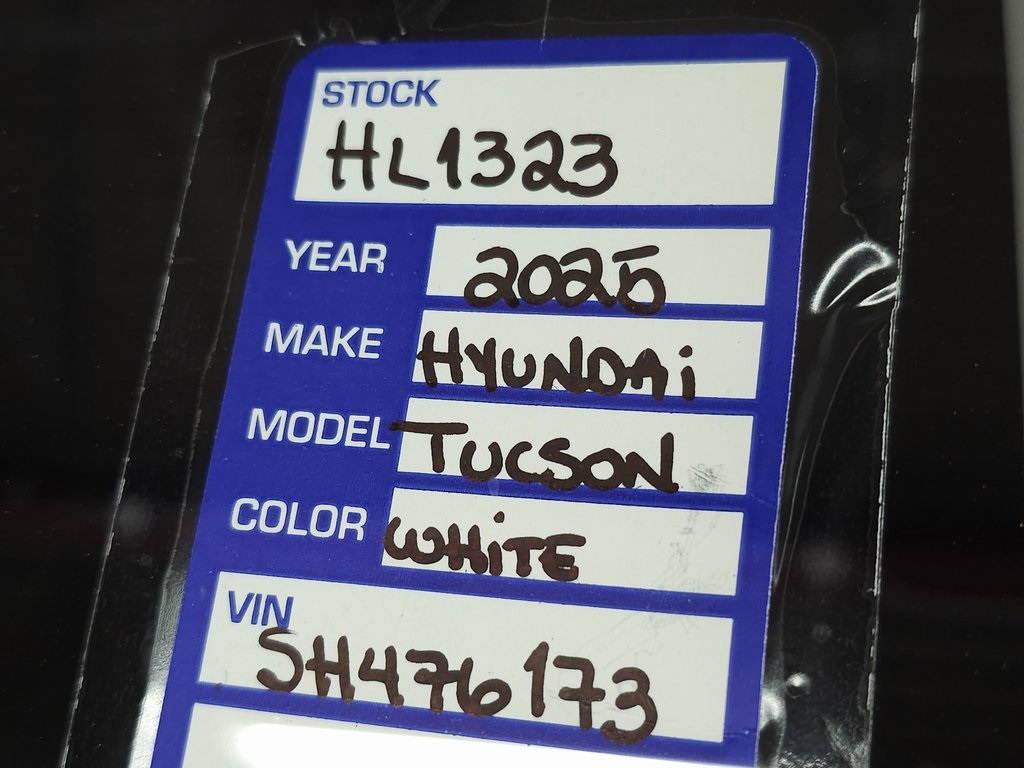 STOCK
HL1323
YEAR 2025
MAKE HYUNDAi
MODEL TUCSON
COLOR WHiTE
VIN
SH476173